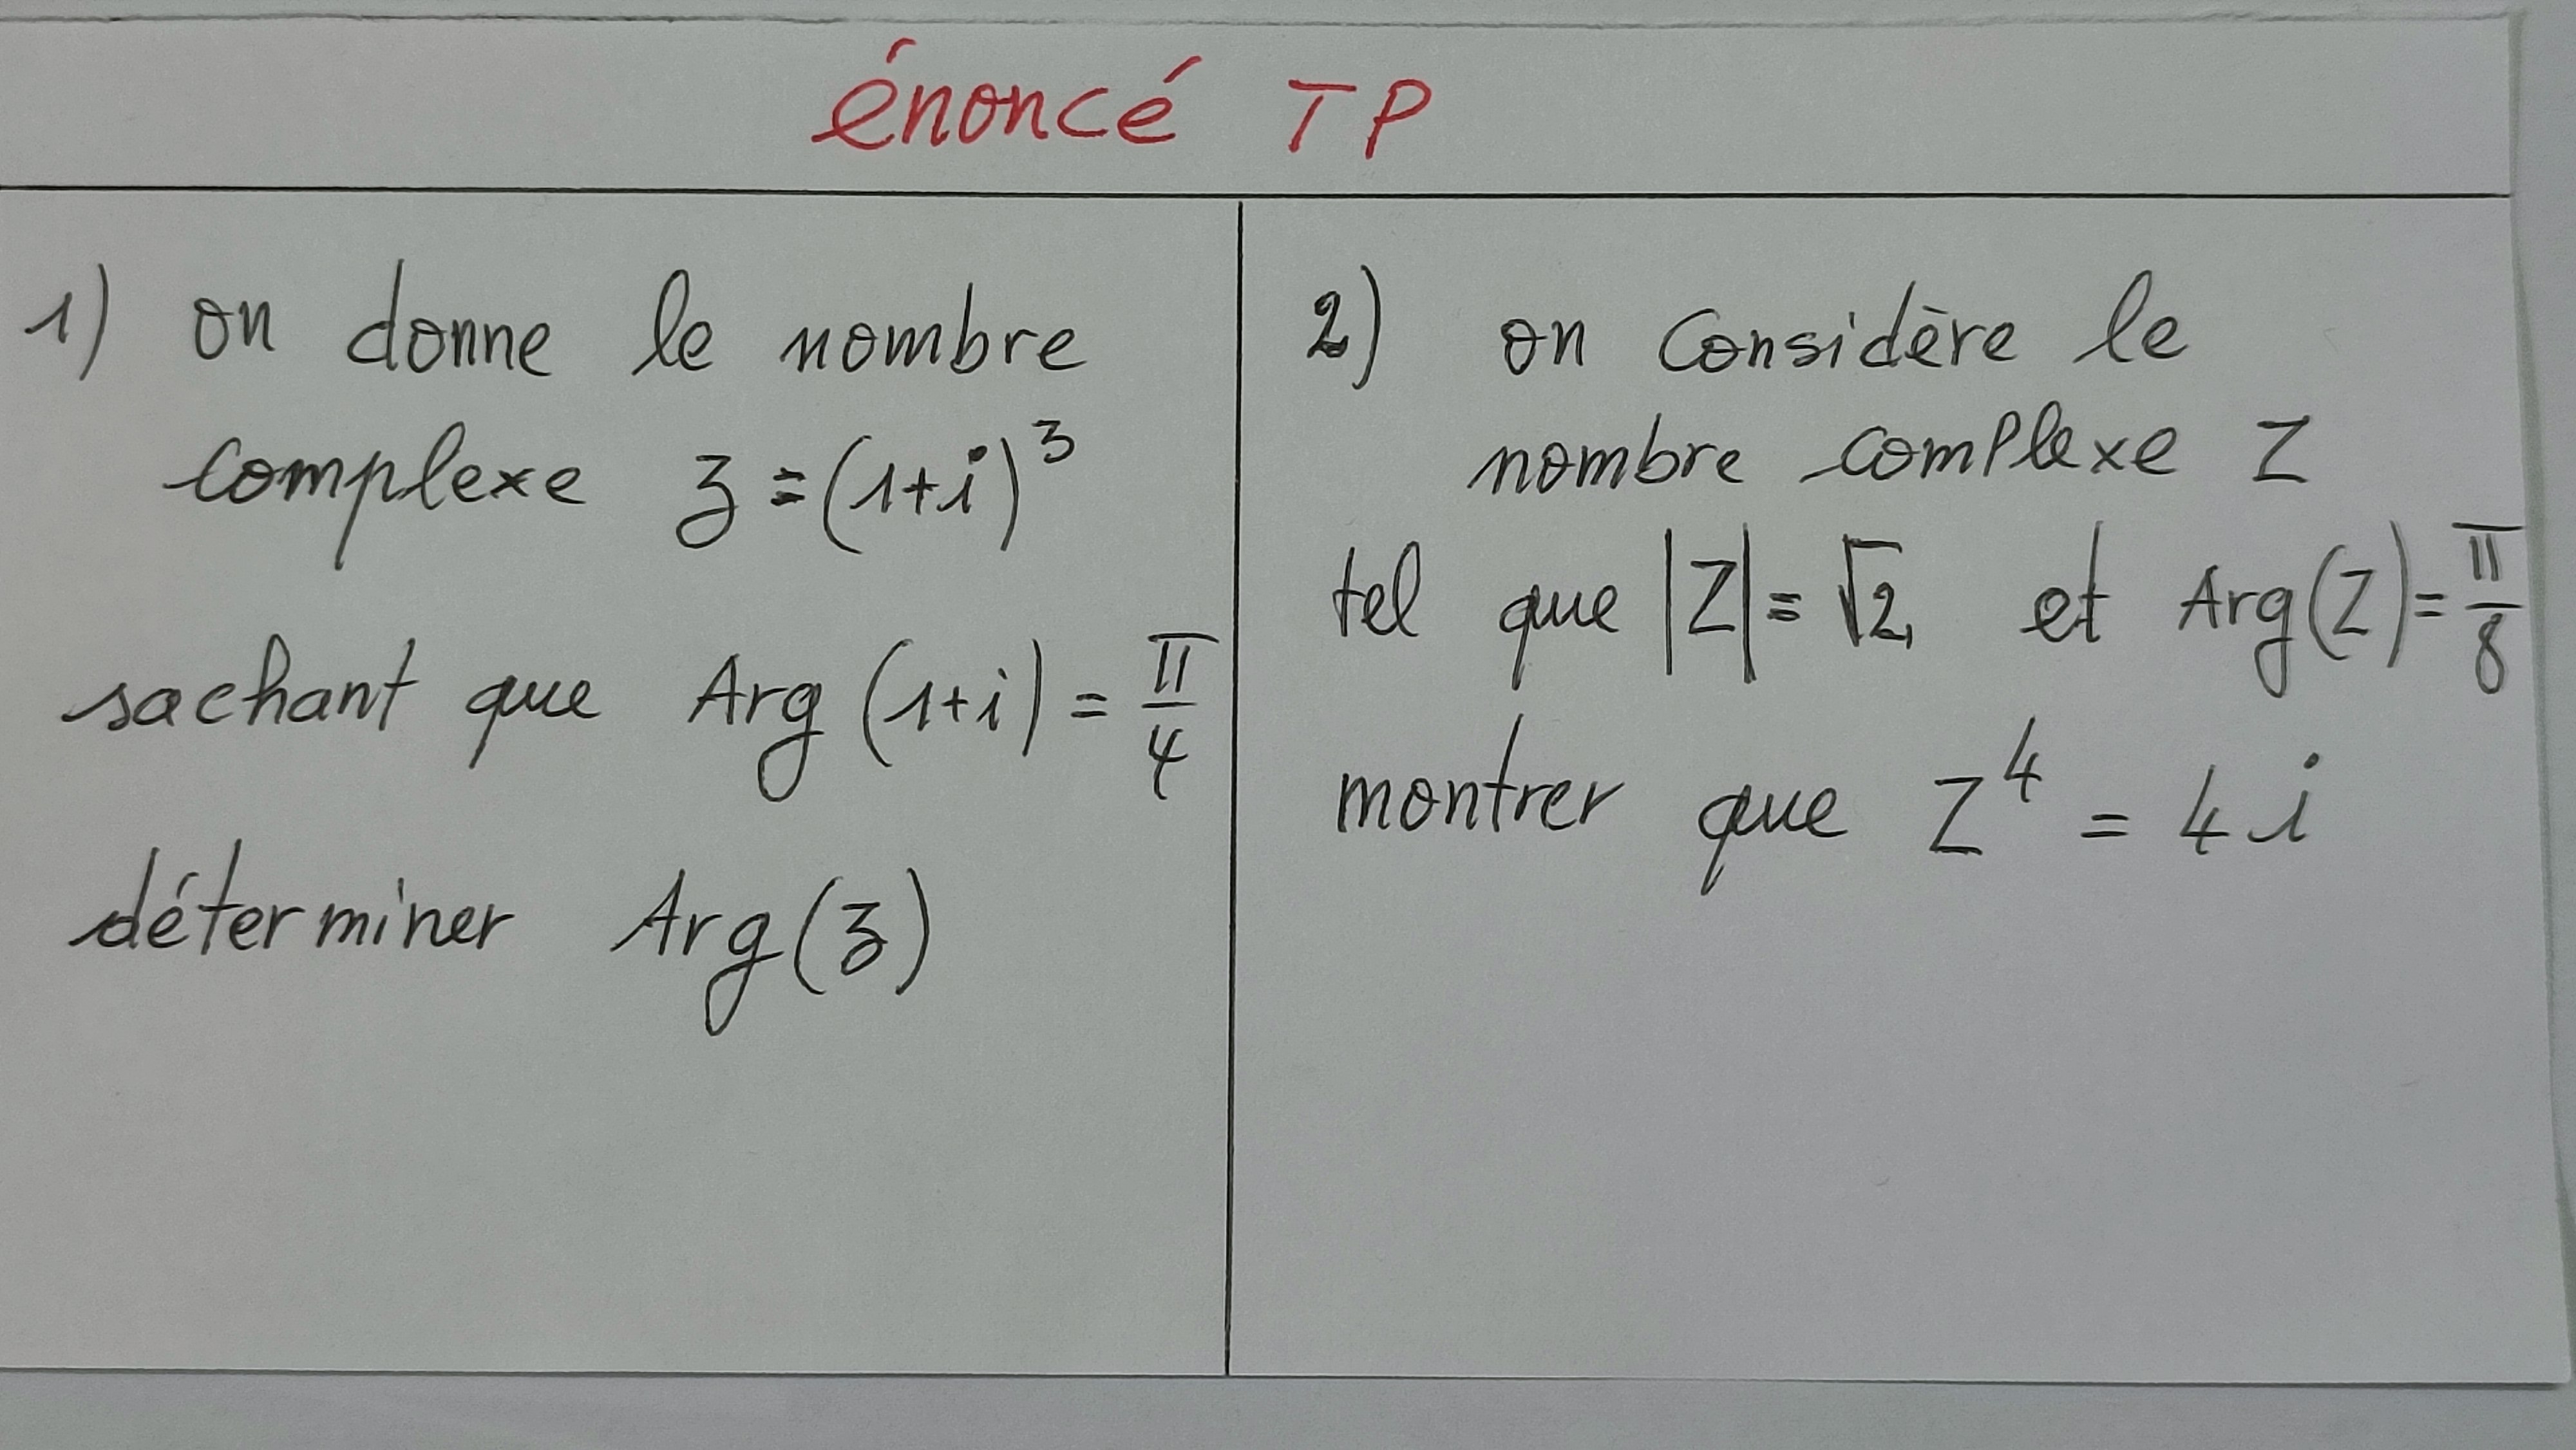 énoncé TP
1) on donne le nombre
complexe z = (1+i)³
sachant que Arg (1+i) = π/4
déterminer Arg(z)
2) on considère le
nombre complexe Z
tel que |Z| = √2 et Arg(Z) = π/8
montrer que Z⁴ = 4i